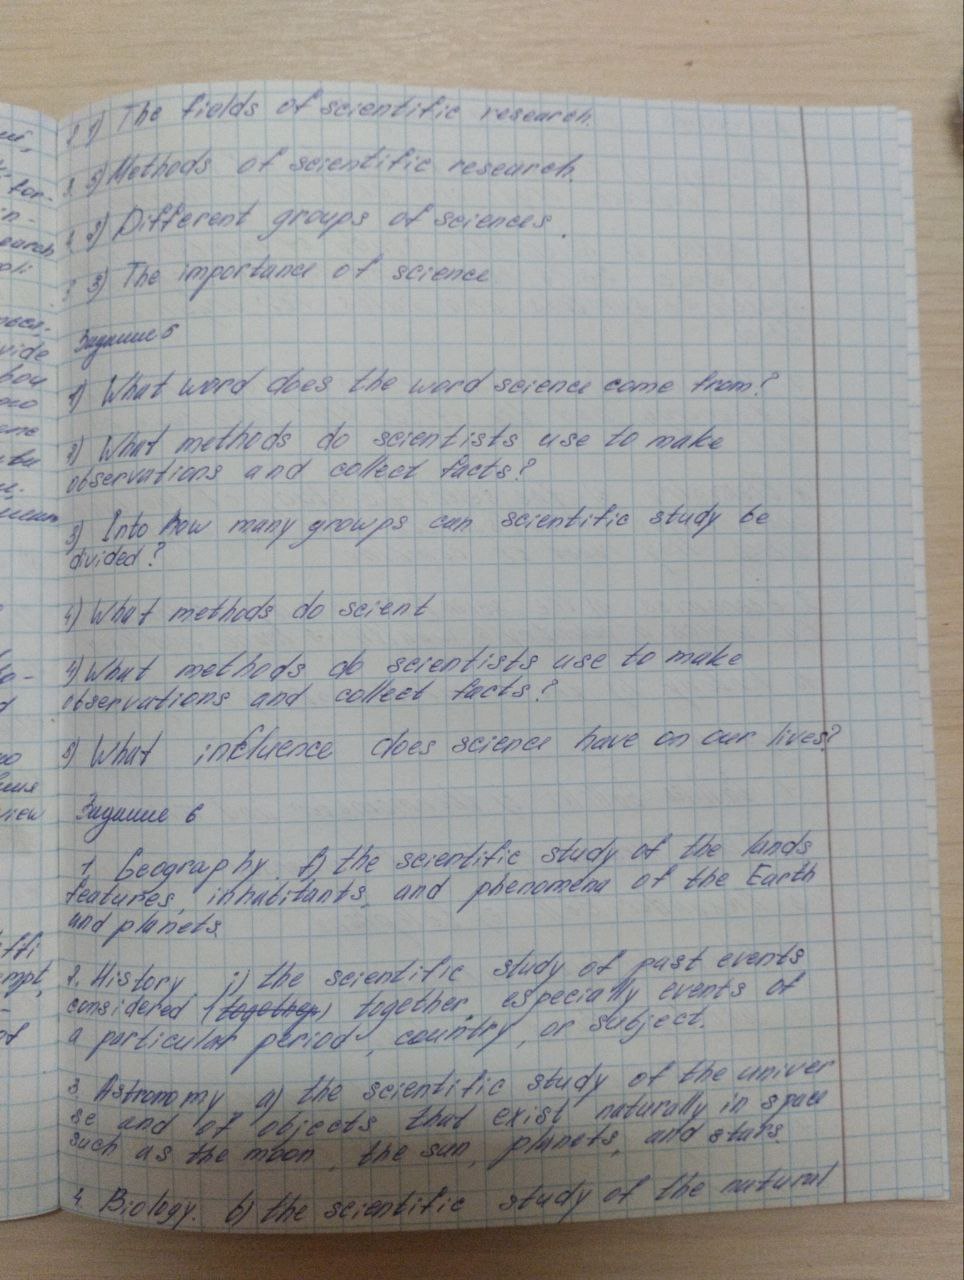 1) The fields of scientific research.
5) Methods of scientific research.
2) Different groups of sciences.
3) The importance of science
Задание 5
1) What word does the word science come from?
2) What methods do scientists use to make
observations and collect facts?
3) Into how many groups can scientific study be
divided?
4) What methods do scient
4) What methods do scientists use to make
observations and collect facts?
5) What influence does science have on our lives?
Задание 6
1. Geography. f) the scientific study of the lands
features, inhabitants, and phenomena of the Earth
and planets.
2. History. j) the scientific study of past events
considered (together) together, especially events of
a particular period, country, or subject.
3. Astronomy a) the scientific study of the univer
se and of objects that exist naturally in space
such as the moon, the sun, planets, and stars
4. Biology. b) the scientific study of the natural
earch
vide
view